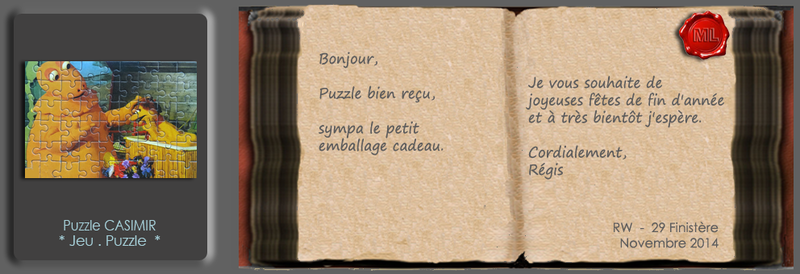 Puzzle CASIMIR
* Jeu . Puzzle *
Bonjour,
Puzzle bien reçu,
sympa le petit
emballage cadeau.
Je vous souhaite de
joyeuses fêtes de fin d'année
et à très bientôt j'espère.
Cordialement,
Régis
RW - 29 Finistère
Novembre 2014
ML